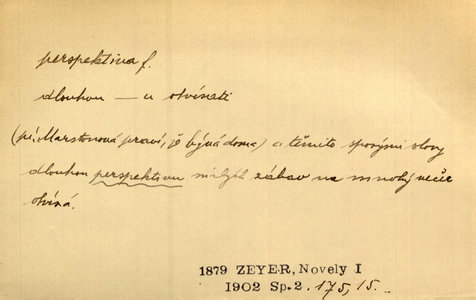 perspektiva f.
dlouhou — u otvírati
(pí. Marstonová praví, že bývá doma) a těmito spornými slovy
dlouhou perspektivu milých zábav na mnohý večer
otvírá.
1879 ZEYER, Novely I
1902 Sp. 2. 175, 15.